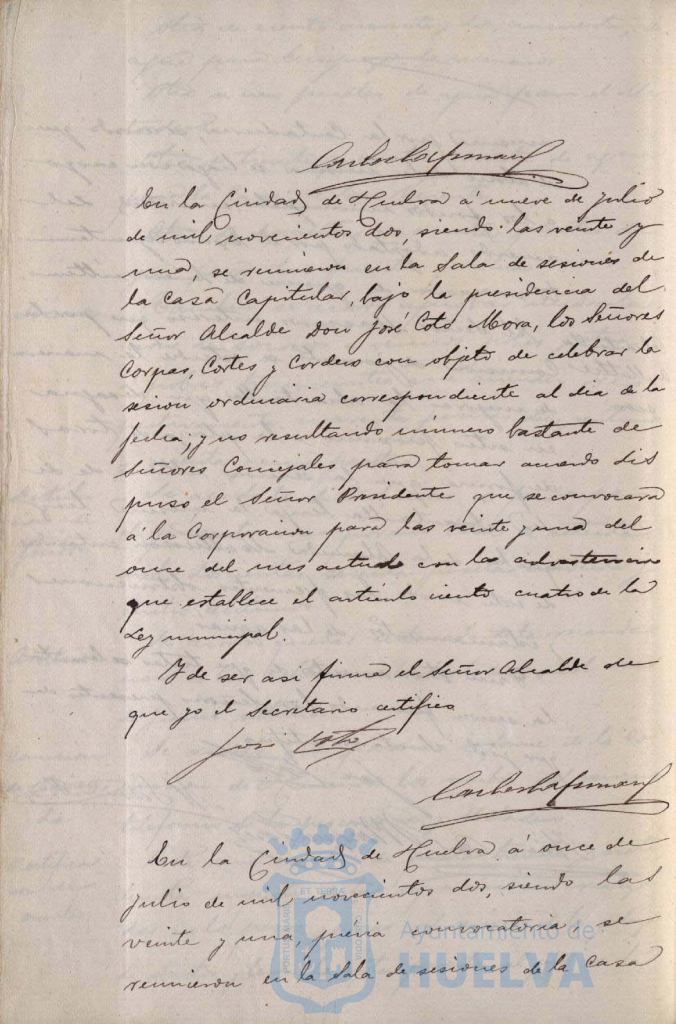 En la Ciudad de Huelva á nueve de julio
de mil novecientos dos, siendo las veinte y
una, se reunieron en la Sala de sesiones de
la Casa Capitular, bajo la presidencia del
Señor Alcalde Don José Coto Mora, los Señores
Corpas, Cortes y Cordero con objeto de celebrar la
sesion ordinaria correspondiente al dia de la
fecha; y no resultando número bastante de
Señores Concejales para tomar acuerdo dis
puso el Señor Presidente que se convocara
á la Corporacion para las veinte y una del
once del mes actual con la advertencia
que establece el artículo ciento cuatro de la
Ley municipal.
Y de ser asi firma el Señor Alcalde de
que yo el Secretario certifico
José Coto
En la Ciudad de Huelva á once de
julio de mil novecientos dos, siendo las
veinte y una, prévia convocatoria se
reunieron en la Sala de sesiones de la Casa
Ayuntamiento de
HUELVA